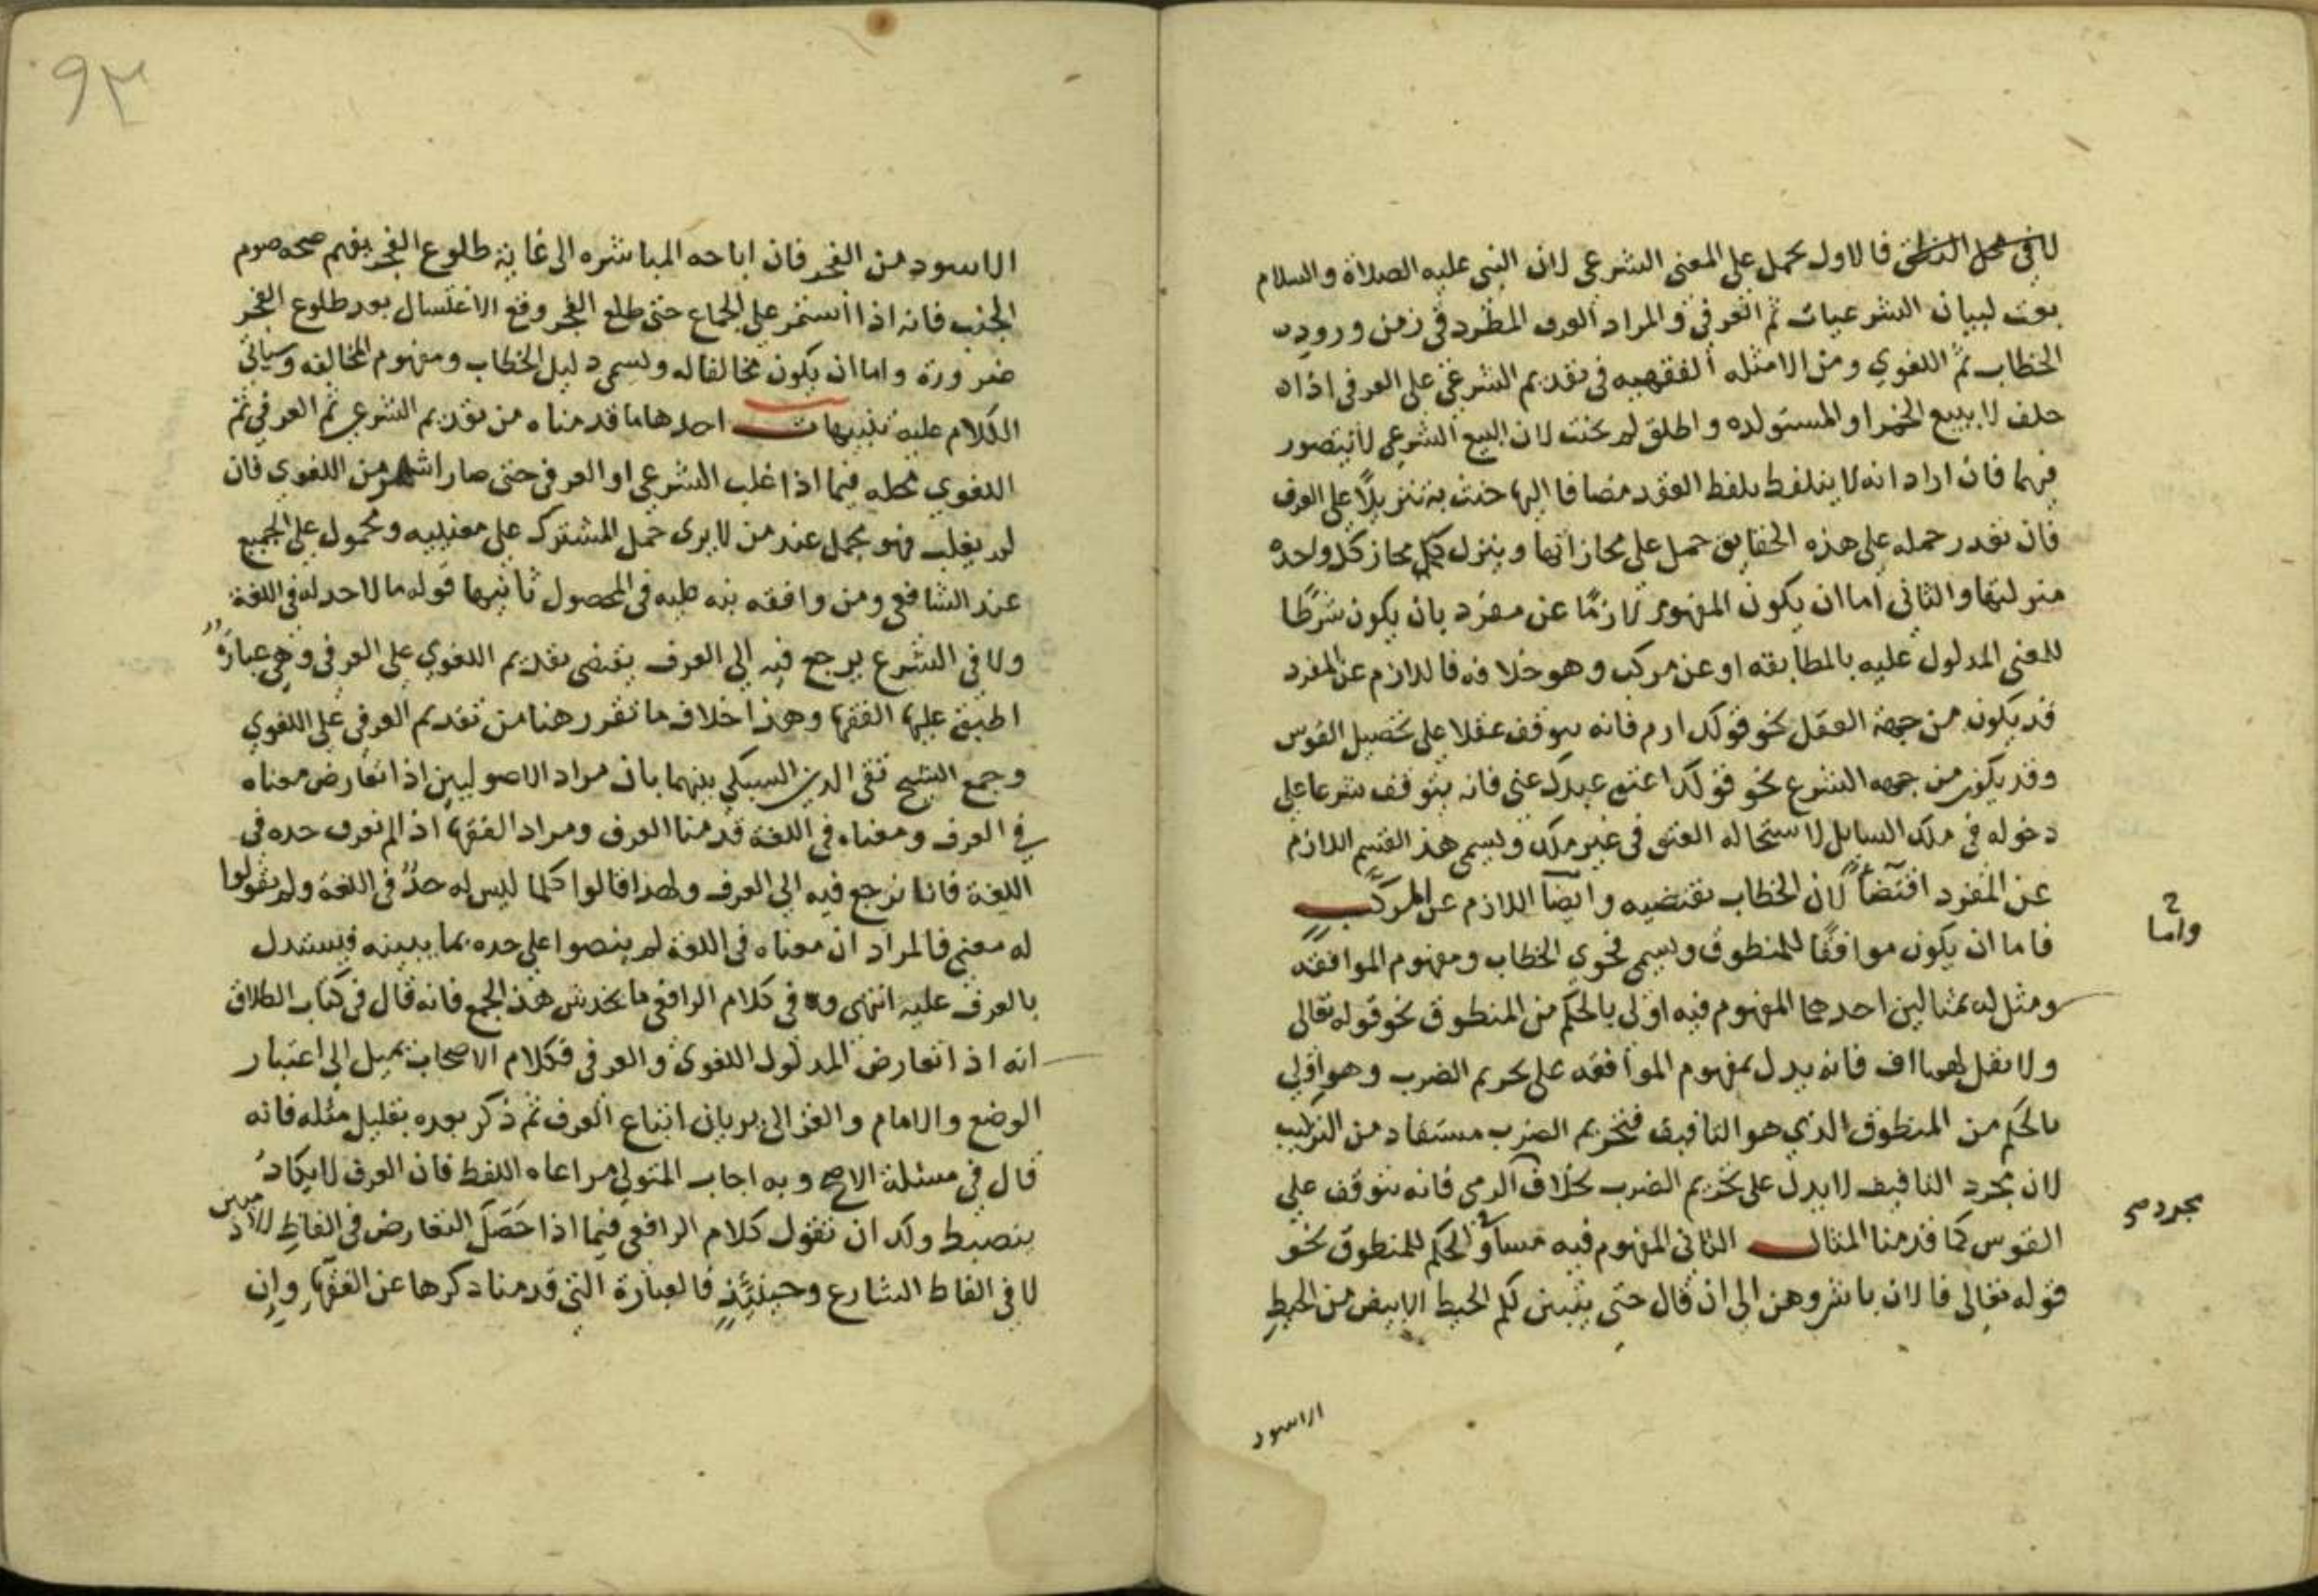 لا في محل النطق فالاول يحمل على المعنى الشرعي لان النبي عليه الصلاة والسلام
بعث لبيان الشرعيات ثم العرفي والمراد العرف المطرد في زمن ورود
الخطاب ثم اللغوي ومن الامثله الفقهيه في تقديم الشرعي على العرفي اذا
حلف لا يبيع الخمر او المستولده واطلق لم يحنث لان البيع الشرعي لا يتصور
فيهما فان اراد انه لا يتلفظ بلفظ العقد مضافا اليها حنث به تنزيلا على العرف
فان تعذر حمله على هذه الحقايق حمل على مجازاتها وينزل مجاز كل واحده
منزلتها والثاني اما ان يكون المفهوم لازمًا عن مفرد بان يكون شرطًا
للمعنى المدلول عليه بالمطابقه او عن مركب وهو خلافه فاللازم عن المفرد
قد يكون من جهة العقل نحو قولك ارم فانه يتوقف عقلا على تحصيل القوس
وقد يكون من جهه الشرع نحو قولك اعتق عبدك عني فانه يتوقف شرعا على
دخوله في ملك السايل لاستحاله العتق في غير ملك ويسمى هذا القسم اللازم
عن المفرد اقتضاً لان الخطاب يقتضيه وايضا اللازم عن المركب
واما
فاما ان يكون موافقًا للمنطوق ويسمى فحوى الخطاب ومفهوم الموافقه
ومثل له بمثالين احدهما المفهوم فيه اولى بالحكم من المنطوق نحو قوله تعالى
ولا تقل لهما اف فانه يدل بمفهوم الموافقه على تحريم الضرب وهو اولى
بالحكم من المنطوق الذي هو التافيف فتحريم الضرب مستفاد من التركيب
لان مجرد التافيف لا يدل على تحريم الضرب بخلاف الرمي فانه يتوقف على
مجرده
القوس كما قدمنا المثال الثاني المفهوم فيه مساوٍ الحكم للمنطوق نحو
قوله تعالى فالان باشروهن الى ان قال حتى يتبين لكم الخيط الابيض من الخيط
الاسود
٩٣
الاسود من الفجر فان اباحه المباشره الى غاية طلوع الفجر يفهم صحه صوم
الجنب فانه اذا استمر على الجماع حتى طلع الفجر وقع الاغتسال بعد طلوع الفجر
ضرورة واما ان يكون مخالفا له ويسمى دليل الخطاب ومفهوم المخالفه وسياتي
الكلام عليه تنبيهات احدها ما قدمناه من تقديم الشرعي ثم العرفي ثم
اللغوي محله فيما اذا غلب الشرعي او العرفي حتى صار اشهر من اللغوي فان
لم يغلب فهو مجمل عند من لا يرى حمل المشترك على معنييه ومحمول على الجميع
عند الشافعي ومن وافقه نبه عليه في المحصول ثانيها قوله ما لا حد له في اللغة
ولا في الشرع يرجع فيه الى العرف يقتضي تقديم اللغوي على العرفي وهي عبارة
اطبق عليها الفقها وهذا خلاف ما تقرر هنا من تقديم العرفي على اللغوي
وجمع الشيخ تقي الدين السبكي بينهما بان مراد الاصوليين اذا تعارض معناه
في العرف ومعناه في اللغة قدمنا العرف ومراد الفقها اذا لم نعرف حده في
اللغة فانا نرجع فيه الى العرف ولهذا قالوا كلما ليس له حدٌّ في اللغة ولم يقولوا
له معنى فالمراد ان معناه في اللغة لم ينصوا على حده بما يبينه فيستدل
بالعرف عليه انتهى وفي كلام الرافعي ما يخدش هذا الجمع فانه قال في كتاب الطلاق
انه اذا تعارض المدلول اللغوي والعرفي فكلام الاصحاب يميل الى اعتبار
الوضع والامام والغزالي يريان اتباع العرف ثم ذكر بعده بقليل مثله فانه
قال في مسئلة الاصح وبه اجاب المتولي مراعاه اللفظ فان العرف لا يكاد
ينضبط ولك ان تقول كلام الرافعي فيما اذا حَصَلَ التعارض في الفاظ الادميين
لا في الفاظ الشارع وحينئذٍ فالعبارة التي قدمنا ذكرها عن الفقهاء وان